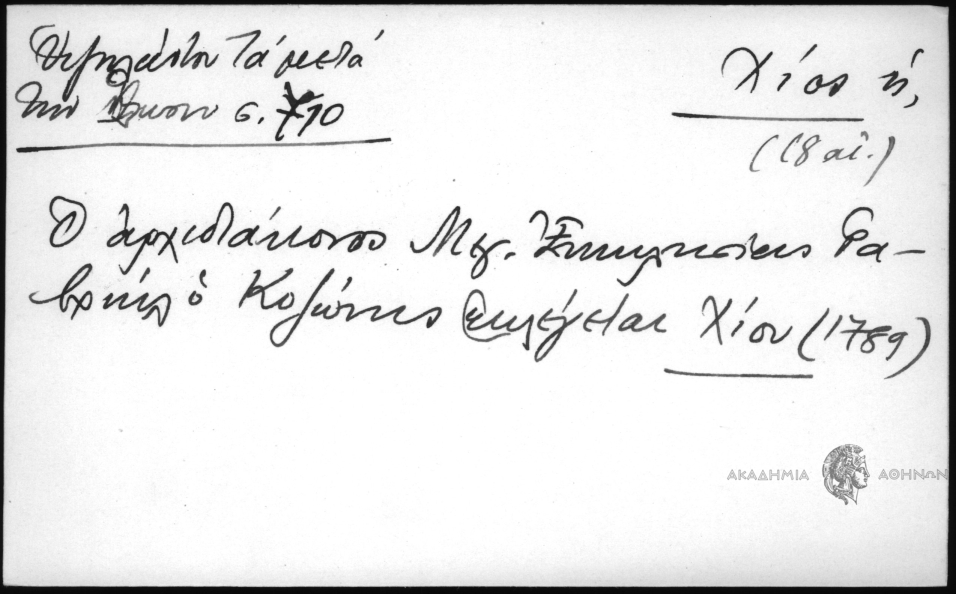 Ὑψηλάντου Τά μετά
τήν Ἅλωσιν σ. 710
Χίος ἡ,
(18 αἰ.)
Ὁ ἀρχιδιάκονος Μεγ. Ἐκκλησίας Γα-
βριήλ ὁ Κοζάνης ἐκλέγεται Χίου (1789)
ΑΚΑΔΗΜΙΑ ΑΘΗΝΩΝ